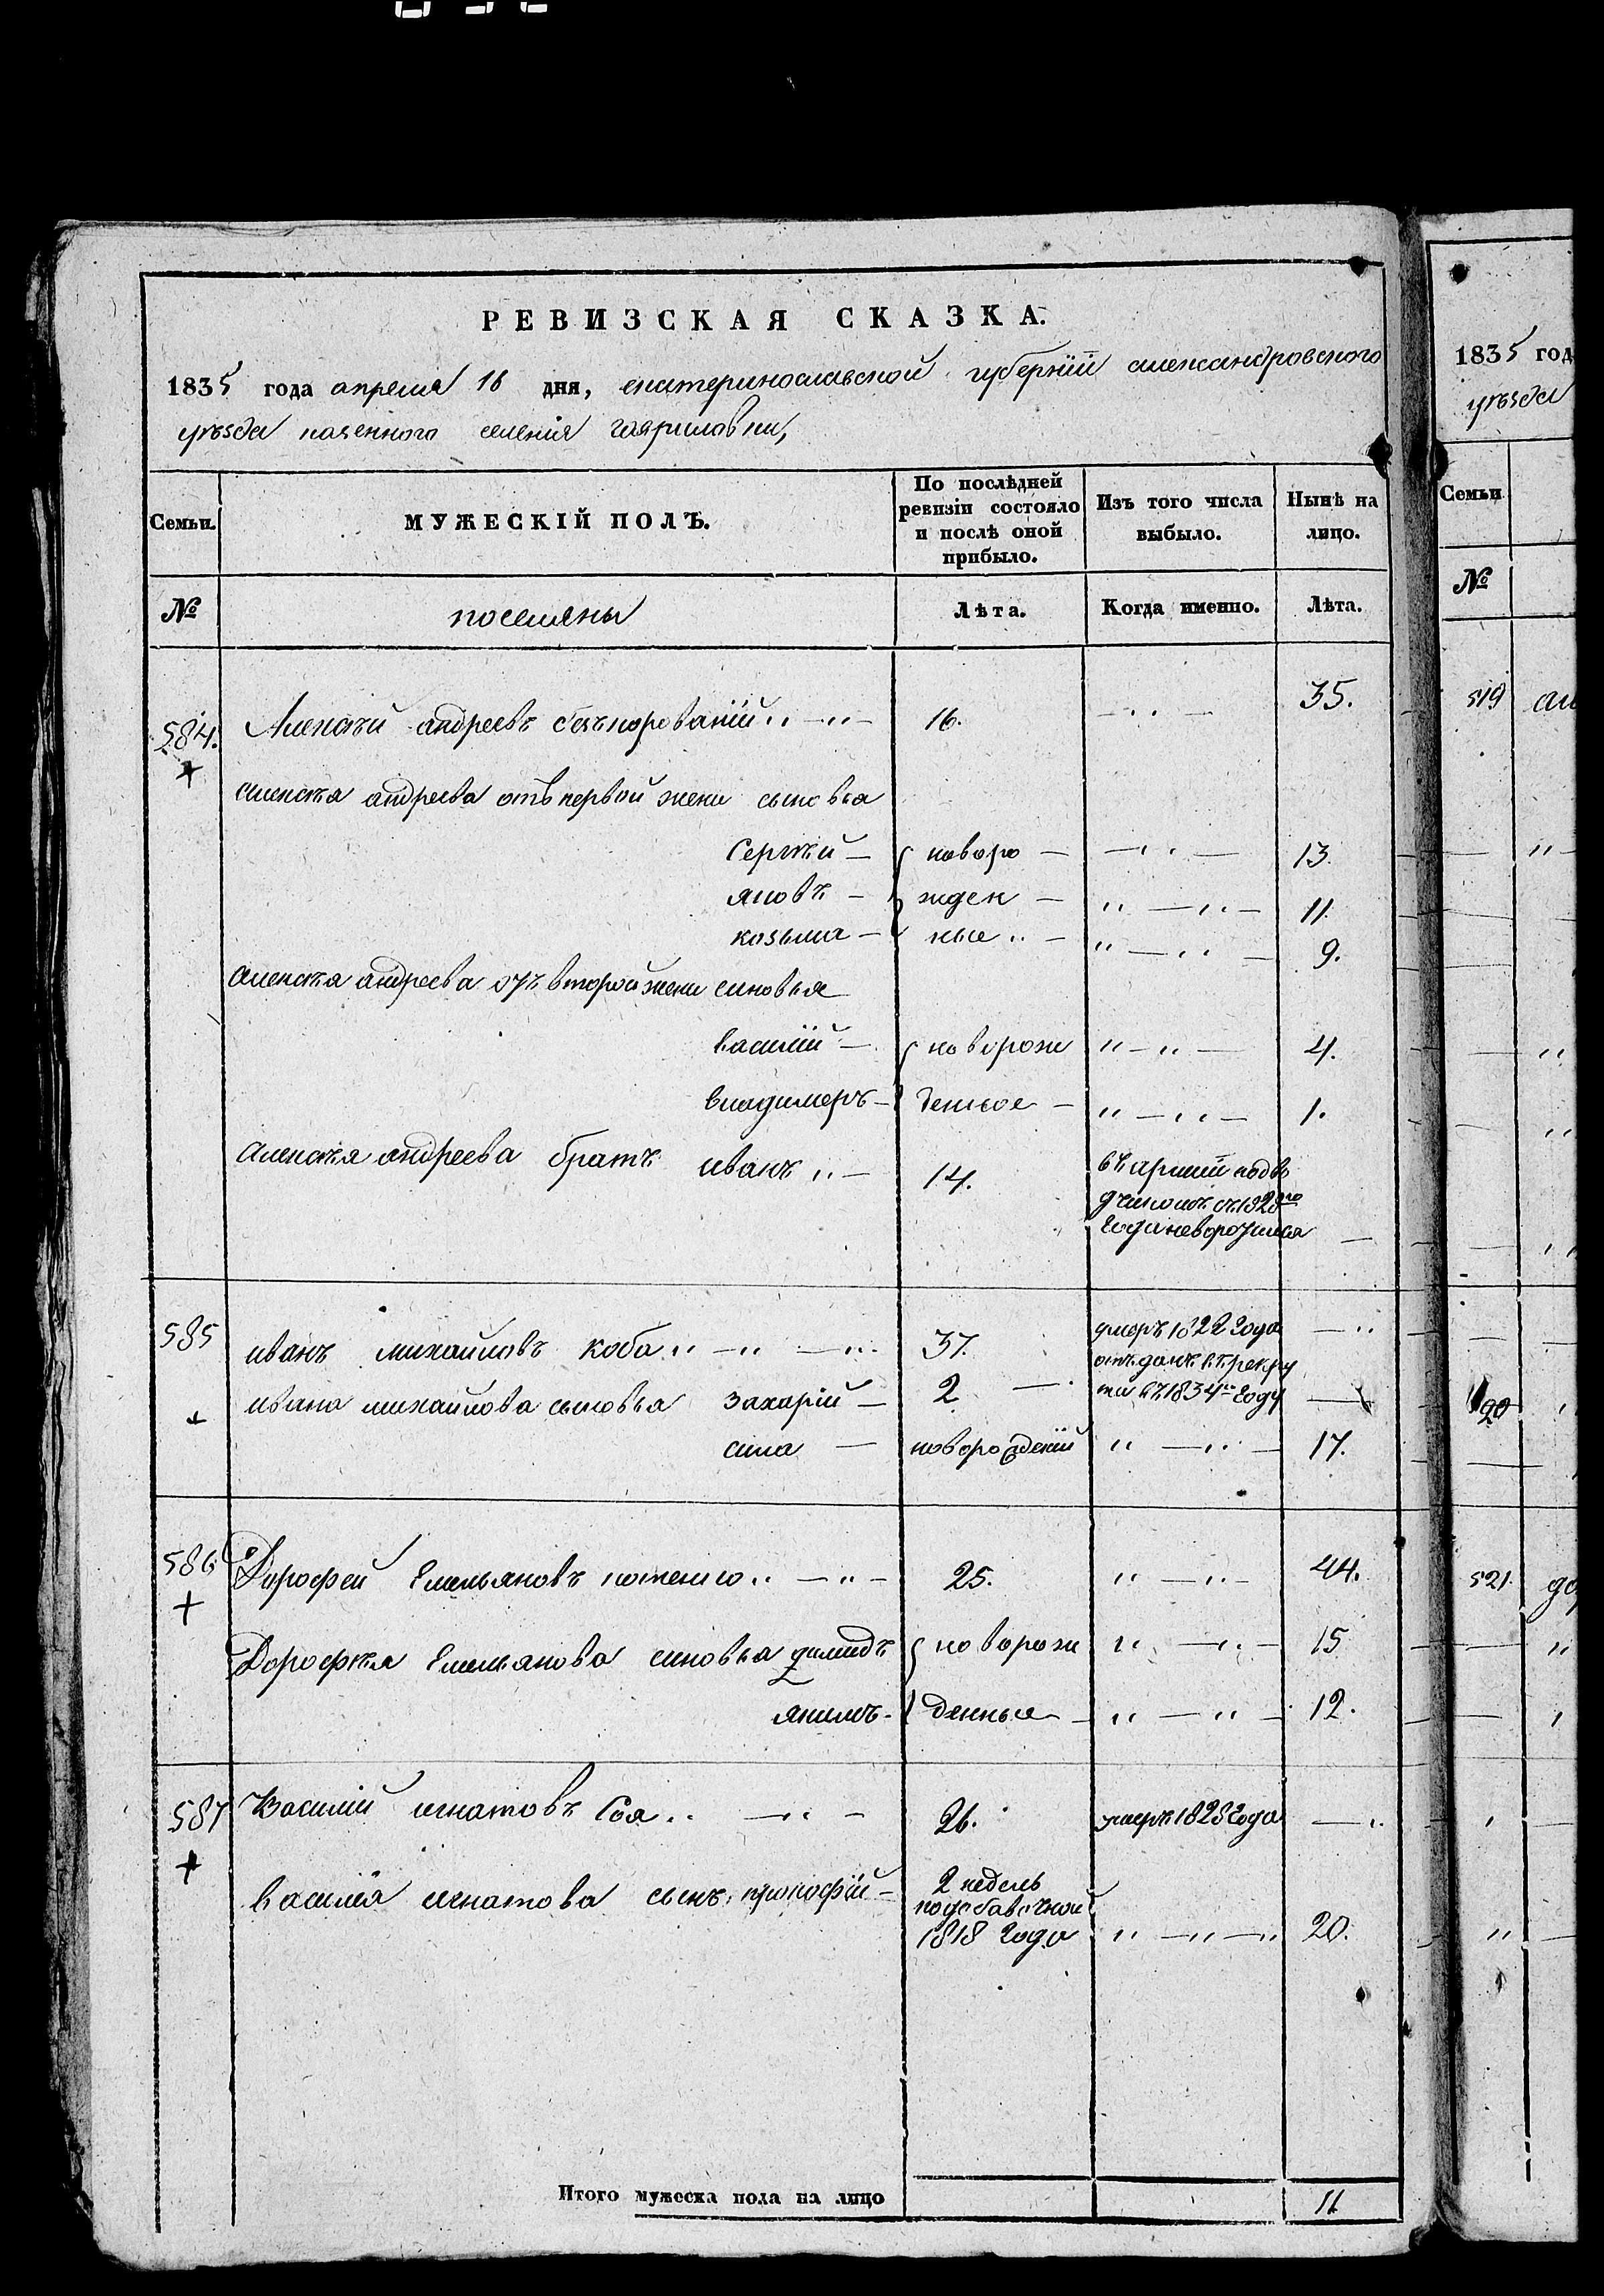 РЕВИЗСКАЯ СКАЗКА.
1835 года апреля 16 дня, екатеринославской губернїй александровского
уѣзда казенного селенія гавриловки,
Семьи.
МУЖЕСКІЙ ПОЛЪ.
По послѣдней ревизіи состояло и послѣ оной прибыло.
Изъ того числа выбыло.
Нынѣ на лицо.
№
поселяны
Лѣта.
Когда именно.
Лѣта.
584. Алексѣй андреевъ 16. 35.
алексѣя андреева отъ первой жени сыновья
Сергѣй — новоро — 13.
яковъ — жден — 11.
козьма — ные 9.
алексѣя андреева отъ второй жени синовья
василїй — новорож 4.
владимеръ — денные — 1.
алексѣя андреева братъ иванъ 14.
въ армїй подво
дчикомъ съ 1828го
года невороτился
585 иванъ михайловъ коба 37. умеръ 1822 года
ивана михайлова сыновья захарій — 2 отъданъ въ рекру
ти въ 1834м году
сила — новорожденїй 17.
586 Дорофей Емельяновъ 25. 44.
Дорофѣя Емельянова синовья демидъ новорож 15
якимъ — денные 12.
587 Василій игнатовъ Соя 26. умеръ 1828 года
василїя игнатова сынъ прокофїй — 2 недель
по добавочной
1818 года 20.
Итого мужеска пола на лицо 11
1835 год
уѣзда
Семьи
№
519
20
521